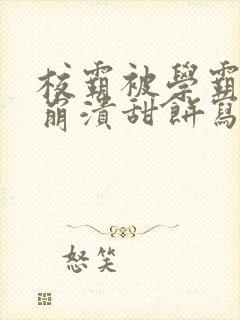 校霸被學霸
崩潰甜餅寫
怒笑